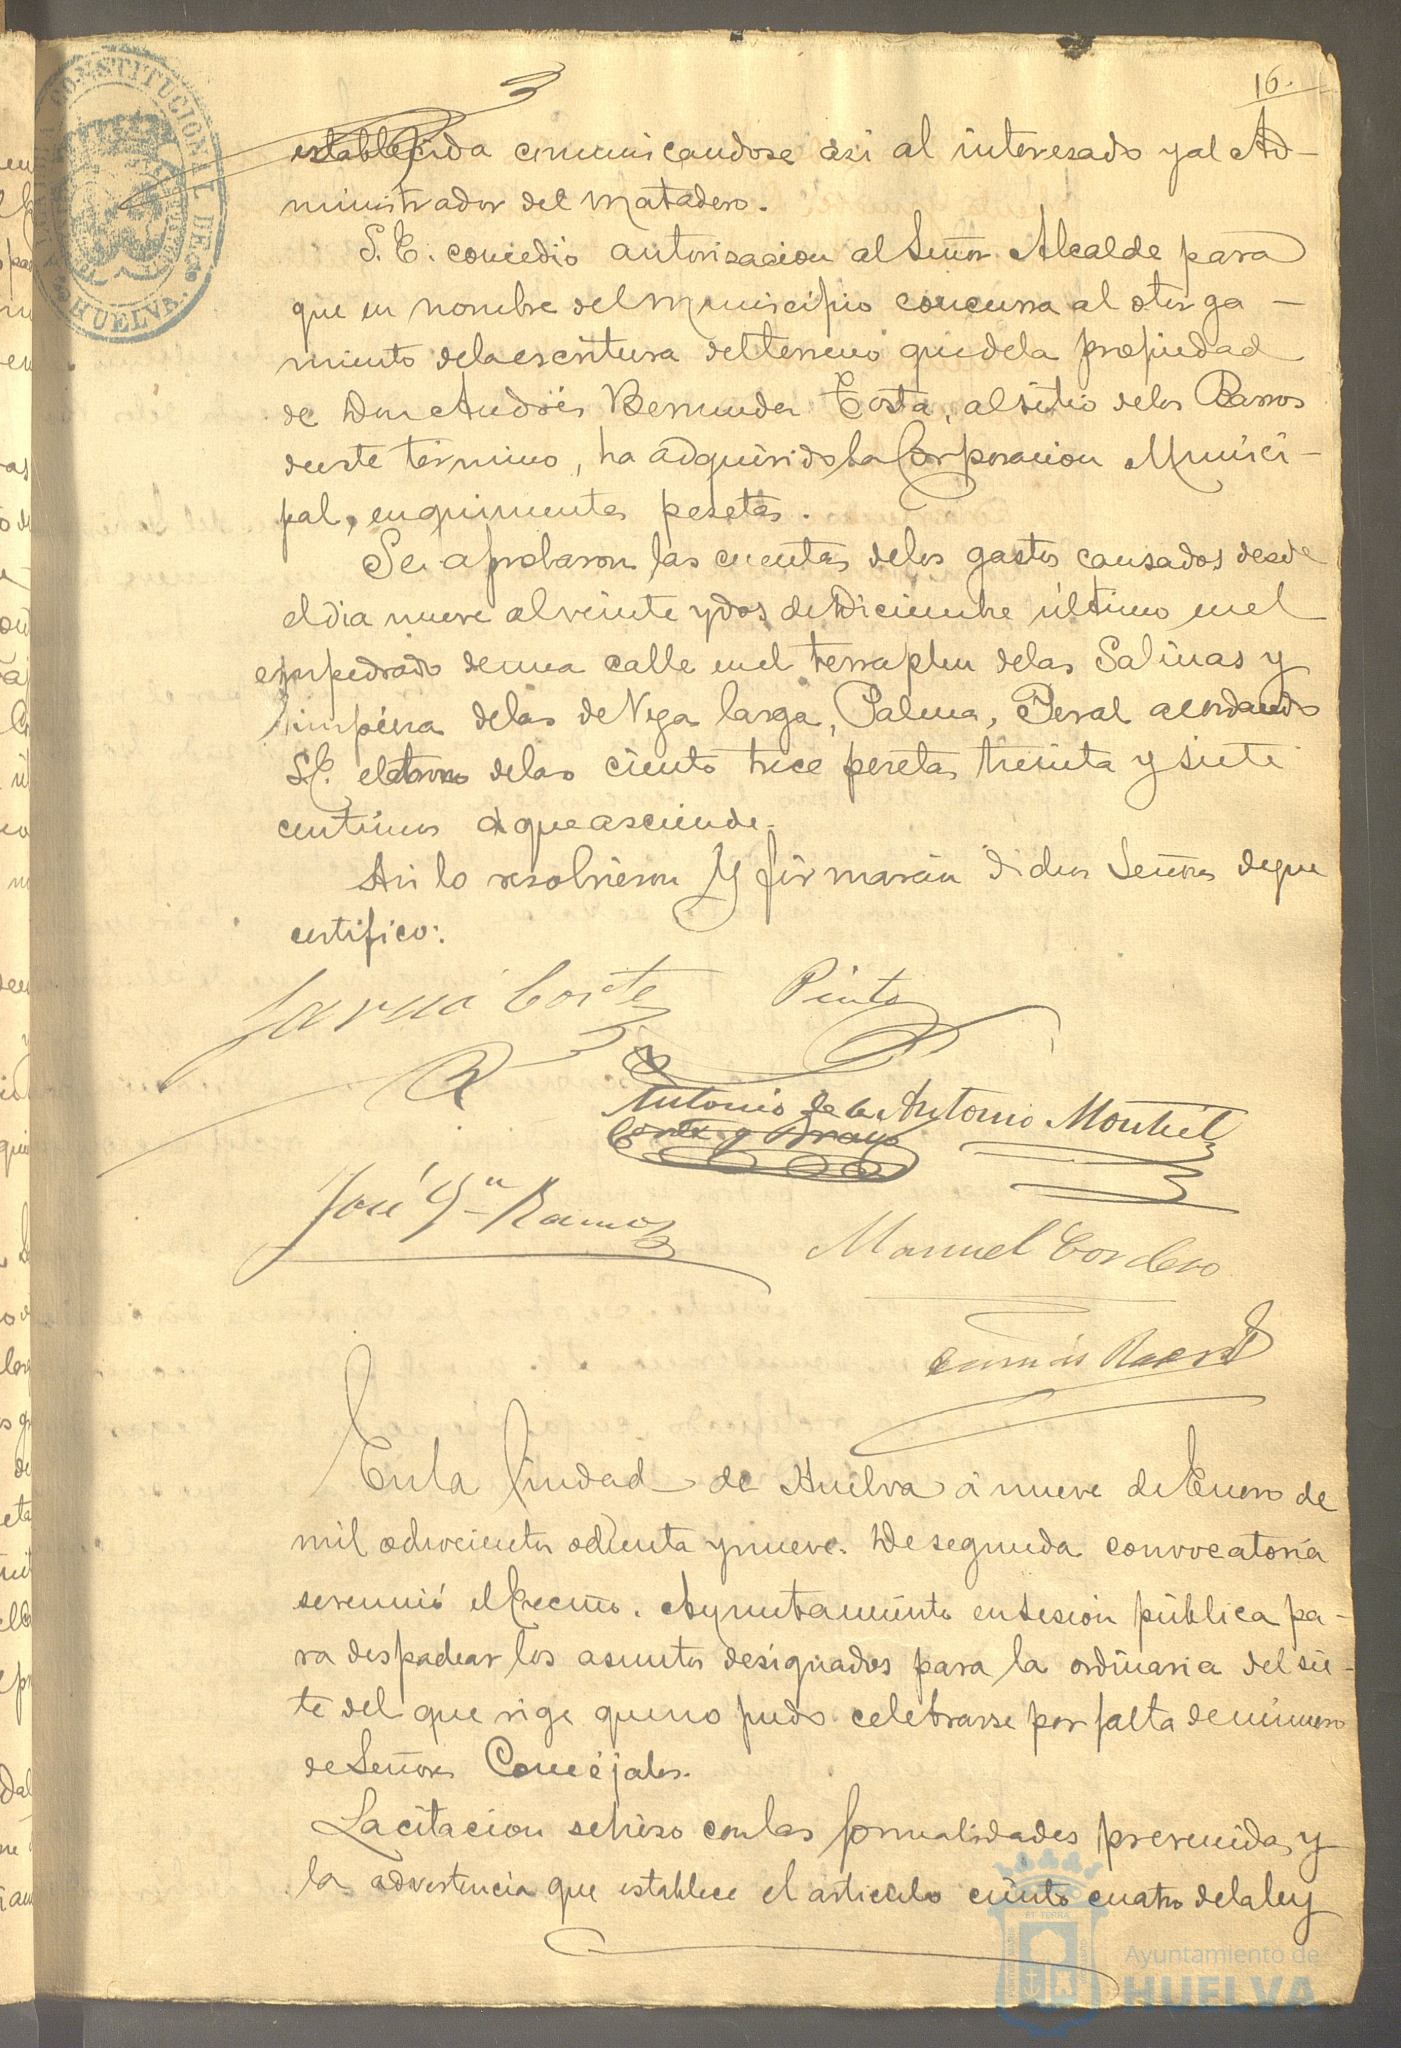 16.
establecida comunicandose asi al interesado y al Ad-
ministrador del Matadero.
S. E. concedió autorizacion al Señor Alcalde para
que en nombre del Municipio concurra al otorga-
miento de la escritura del terreno que de la propiedad
de Don Andrés Bermudez Costa, al sitio de los Barros
de este término, ha adquirido la Corporacion Munici-
pal, en quinientas pesetas.
Se aprobaron las cuentas de los gastos causados desde
el dia nueve al veinte y dos de Diciembre último en el
empedrado de una calle en el terraplen de las Salinas y
limpieza de las de Vega larga, Palma, Peral acordando
S.E. el abono de las ciento trece pesetas treinta y siete
centimos a que asciende.
Asi lo resolvieron y firmarán dichos Señores de que
certifico:
Garcia Cortes
Pinto
Antonio de la
Corte y Bravo
Antonio Montiel
José Gn Ramos
Manuel Cordero
En la Ciudad de Huelva á nueve de Enero de
mil ochocientos ochenta y nueve. De segunda convocatoria
se reunió el Excmo. Ayuntamiento en sesion pública pa-
ra despachar los asuntos designados para la ordinaria del sie-
te del que rige que no pudo celebrarse por falta de número
de Señores Concejales.
La citacion se hizo con las formalidades prevenidas y
la advertencia que establece el articulo ciento cuatro de la ley
CONSTITUCIONAL DE
HUELVA.
Ayuntamiento de
HUELVA